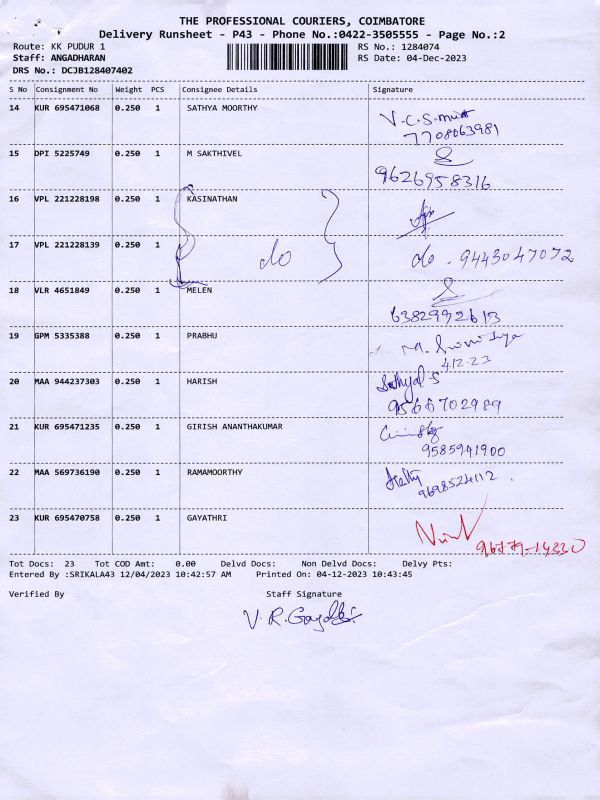 THE PROFESSIONAL COURIERS, COIMBATORE
Delivery Runsheet - P43 - Phone No.:0422-3505555 - Page No.:2
Route: KK PUDUR 1 RS No.: 1284074
Staff: ANGADHARAN RS Date: 04-Dec-2023
DRS No.: DCJB128407402
S No Consignment No Weight PCS Consignee Details Signature
14 KUR 695471068 0.250 1 SATHYA MOORTHY
7708063981
15 DPI 5225749 0.250 1 M SAKTHIVEL
9626958316
16 VPL 221228198 0.250 1 KASINATHAN
17 VPL 221228139 0.250 1 do do. 9443047072
18 VLR 4651849 0.250 1 MELEN
6382992613
19 GPM 5335388 0.250 1 PRABHU
4.12.23
20 MAA 944237303 0.250 1 HARISH
9566702989
21 KUR 695471235 0.250 1 GIRISH ANANTHAKUMAR
9585941900
22 MAA 569736190 0.250 1 RAMAMOORTHY
9698524112
23 KUR 695470758 0.250 1 GAYATHRI
96779-14330
Tot Docs: 23 Tot COD Amt: 0.00 Delvd Docs: Non Delvd Docs: Delvy Pts:
Entered By :SRIKALA43 12/04/2023 10:42:57 AM Printed On: 04-12-2023 10:43:45
Verified By Staff Signature
V.R.